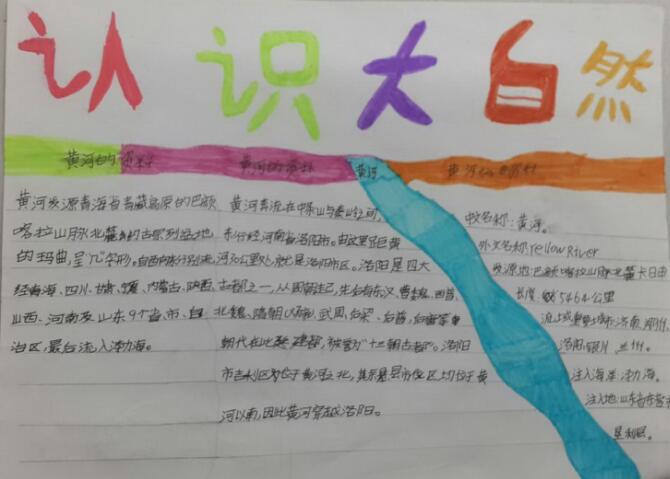 认识大自然
黄河的资料
黄河的资料
黄河
黄河的资料
黄河发源青海省青藏高原的巴颜
喀拉山脉北麓的古宗列盆地
的玛曲,呈"几"字形。自西向东分别流
经青海、四川、甘肃、宁夏、内蒙古、陕西、
山西、河南及山东9个省、市、自
治区,最后流入渤海。
黄河奔流在中条山与崤山之间,
东行经河南省洛阳市。由这里距黄
河30公里处就是洛阳市区。洛阳是四大
古都之一,从周朝起,先后有东汉、曹魏、西晋、
北魏、隋朝、武周、后梁、后唐、后晋等
朝代在此建都,被誉为"十三朝古都"。洛阳
市吉利区位于黄河之北,其余县市位区均位于黄
河以南,因此黄河穿越洛阳。
中文名称:黄河。
外文名称:Yellow River
发源地:巴颜喀拉山脉北麓卡日曲
长度:5464公里
流域重要城市:济南,郑州,
洛阳,银川,兰州。
注入海洋:渤海。
注入地:山东省东营市
垦利县。